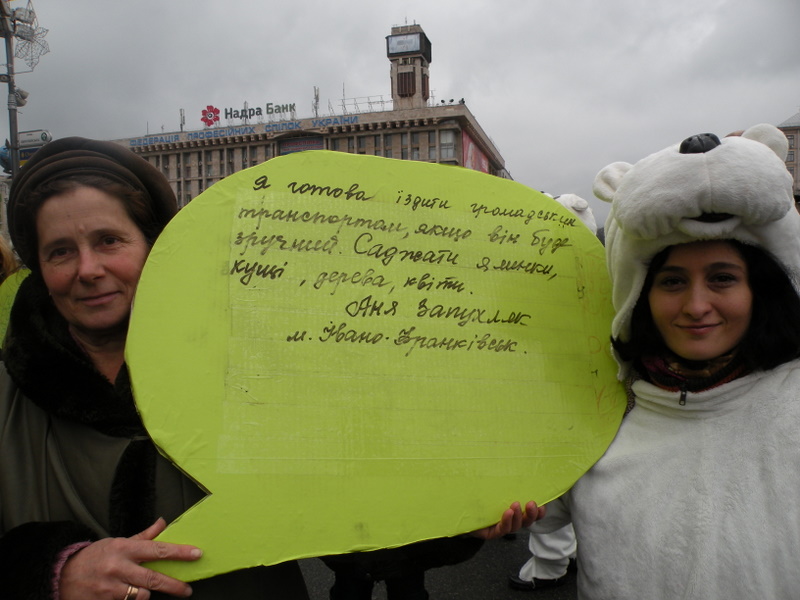 Надра Банк
ФЕДЕРАЦІЯ ПРОФЕСІЙНИХ СПІЛОК УКРАЇНИ
Я готова їздити громадським
транспортом, якщо він буде
зручний. Саджати ялинки,
кущі, дерева, квіти.
Аня Запухляк
м. Івано-Франківськ.